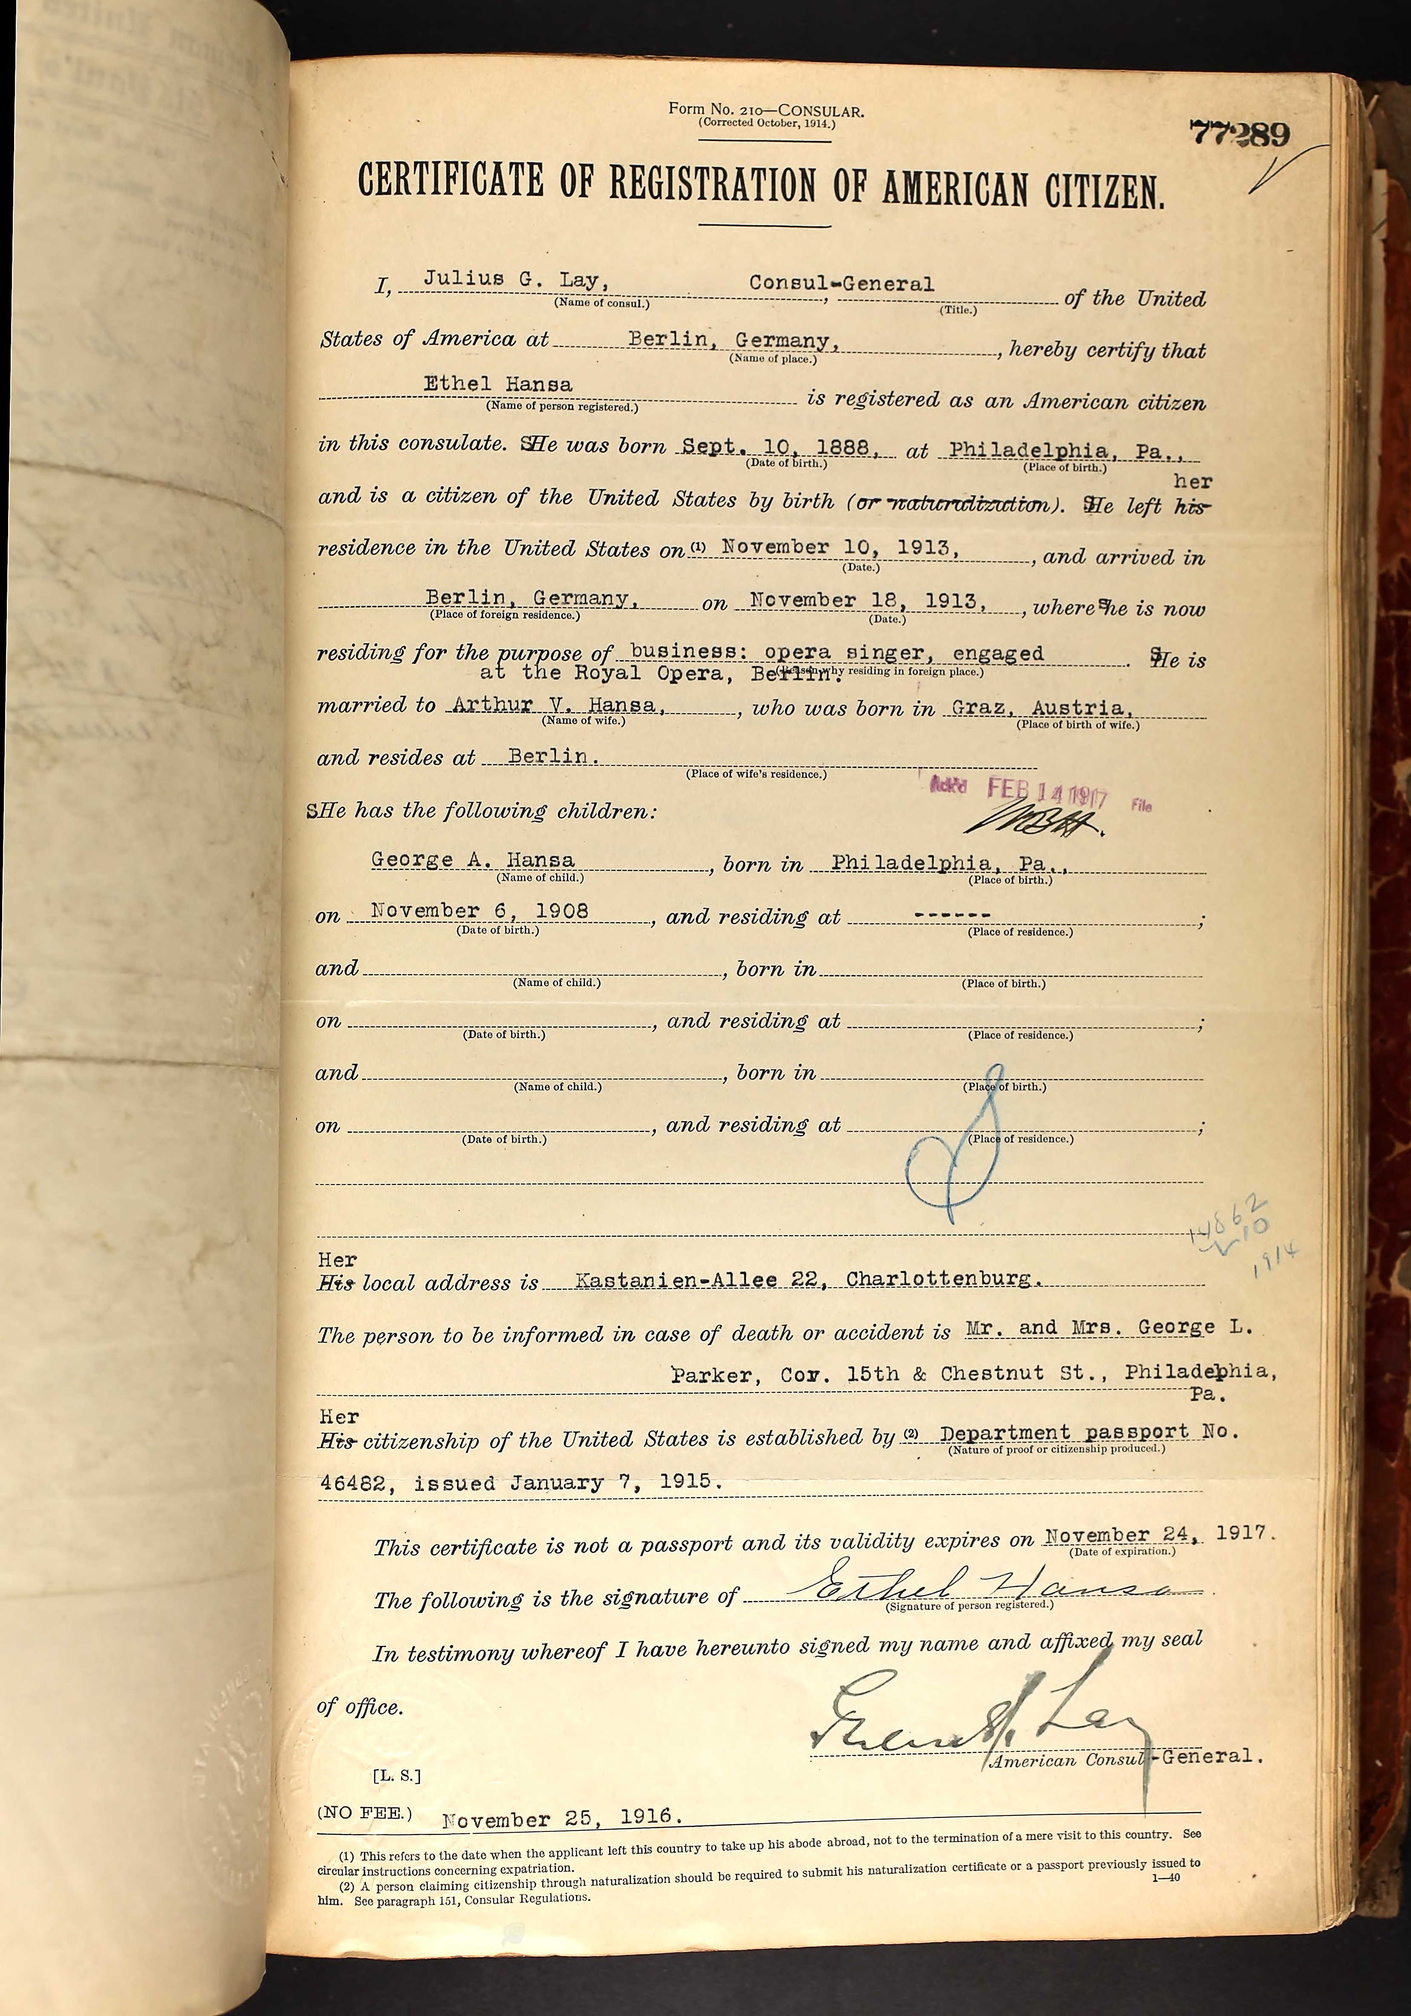 Form No. 210—CONSULAR.
(Corrected October, 1914.)
77289
CERTIFICATE OF REGISTRATION OF AMERICAN CITIZEN.
I, Julius G. Lay, Consul-General of the United
(Name of consul.) (Title.)
States of America at Berlin, Germany, , hereby certify that
(Name of place.)
Ethel Hansa is registered as an American citizen
(Name of person registered.)
in this consulate. SHe was born Sept. 10, 1888, at Philadelphia, Pa.,
(Date of birth.) (Place of birth.)
her
and is a citizen of the United States by birth (or naturalization). SHe left his
residence in the United States on (1) November 10, 1913, , and arrived in
(Date.)
Berlin, Germany, on November 18, 1913, , where she is now
(Place of foreign residence.) (Date.)
residing for the purpose of business: opera singer, engaged . SHe is
at the Royal Opera, Berlin. (Reason why residing in foreign place.)
married to Arthur V. Hansa, , who was born in Graz, Austria,
(Name of wife.) (Place of birth of wife.)
and resides at Berlin.
(Place of wife's residence.)
Ack'd FEB 14 1917 File
SHe has the following children:
George A. Hansa , born in Philadelphia, Pa.,
(Name of child.) (Place of birth.)
on November 6, 1908 , and residing at ------ ;
(Date of birth.) (Place of residence.)
and , born in
(Name of child.) (Place of birth.)
on , and residing at ;
(Date of birth.) (Place of residence.)
and , born in
(Name of child.) (Place of birth.)
on , and residing at ;
(Date of birth.) (Place of residence.)
14862
10
1914
Her
His local address is Kastanien-Allee 22, Charlottenburg.
The person to be informed in case of death or accident is Mr. and Mrs. George L.
Parker, Cor. 15th & Chestnut St., Philadephia,
Pa.
Her
His citizenship of the United States is established by (2) Department passport No.
(Nature of proof or citizenship produced.)
46482, issued January 7, 1915.
This certificate is not a passport and its validity expires on November 24, 1917.
(Date of expiration.)
The following is the signature of Ethel Hansa .
(Signature of person registered.)
In testimony whereof I have hereunto signed my name and affixed my seal
of office.
Lay
American Consul-General.
[L. S.]
(NO FEE.) November 25, 1916.
(1) This refers to the date when the applicant left this country to take up his abode abroad, not to the termination of a mere visit to this country. See
circular instructions concerning expatriation.
(2) A person claiming citizenship through naturalization should be required to submit his naturalization certificate or a passport previously issued to
him. See paragraph 151, Consular Regulations.
1—40